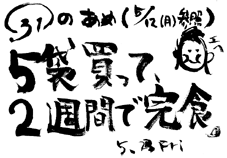 31のあめ(5/12(月)参照)
エヘ
5袋買って、
2週間で完食。
5.23 Fri